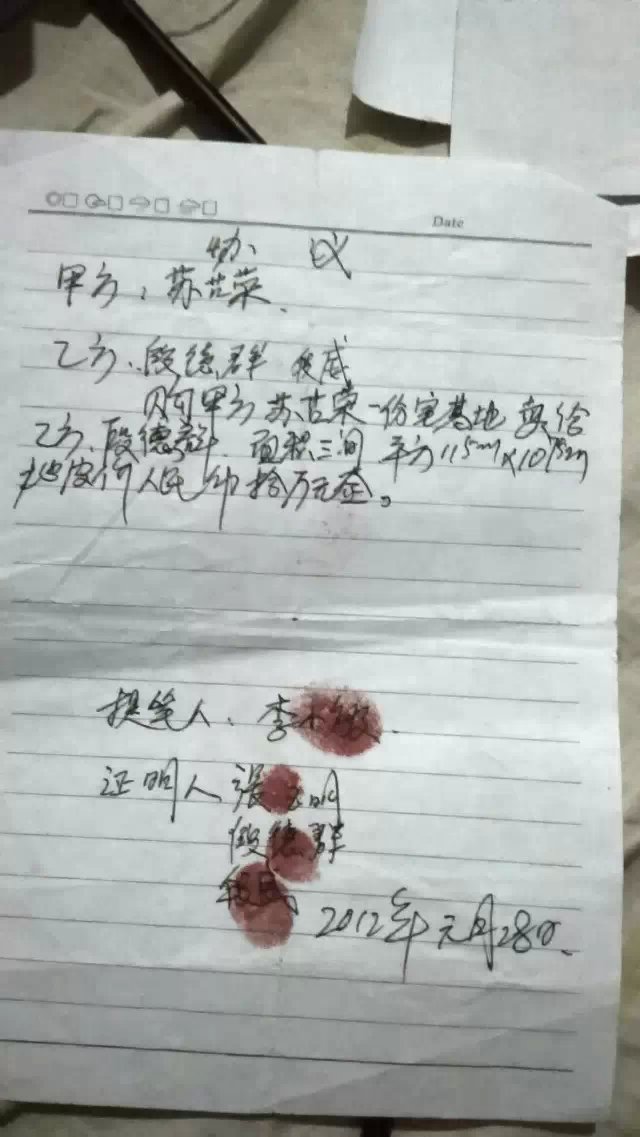 Date
协 议
甲方：苏芸荣、
乙方、段德群 段威
贝何甲方苏芸荣一份宅基地卖给
乙方、段德群、面积三间 平方115m×1015m
地皮价人民币拾万元正。
提笔人、李小
证明人 张 明
段德群
段
2012年元月28日、